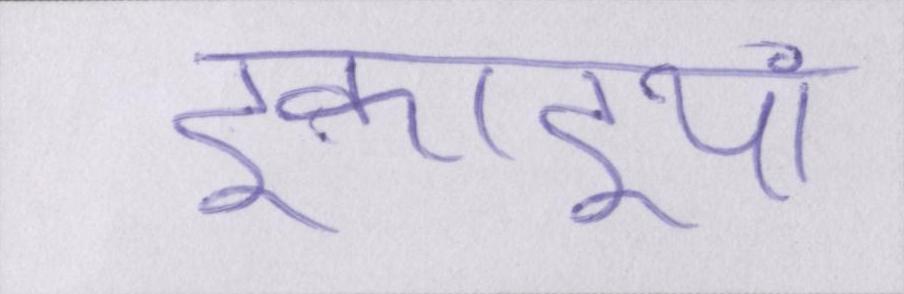 इकाइयां